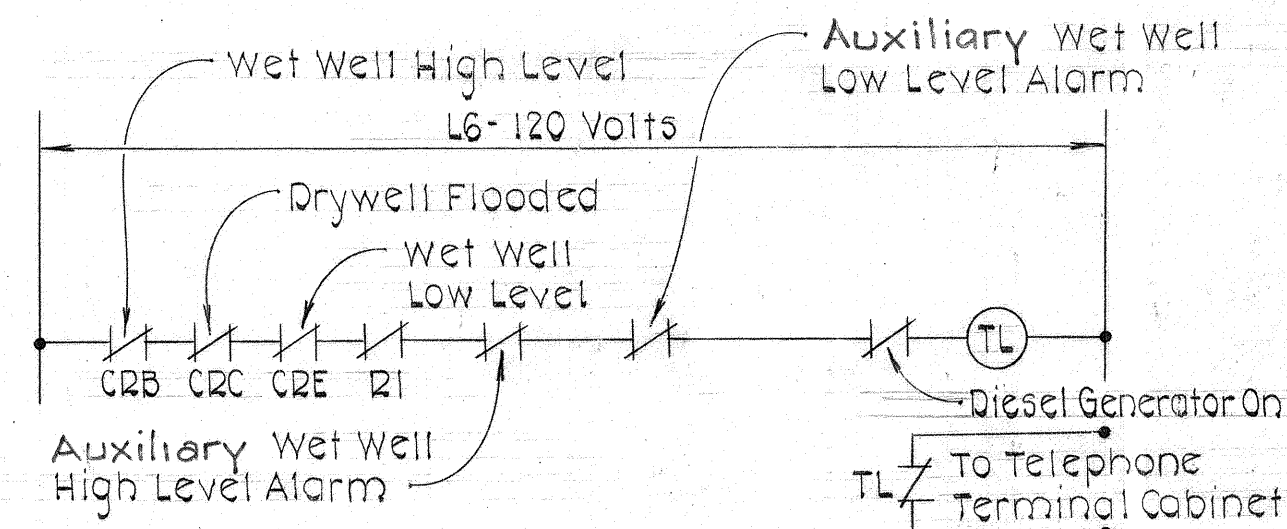 Auxiliary Wet Well
Low Level Alarm
Wet Well High Level
L6-120 Volts
Drywell Flooded
Wet Well
Low Level
CRB CRC CRE R1
TL
Diesel Generator On
Auxiliary Wet Well
High Level Alarm
TL
To Telephone
Terminal Cabinet